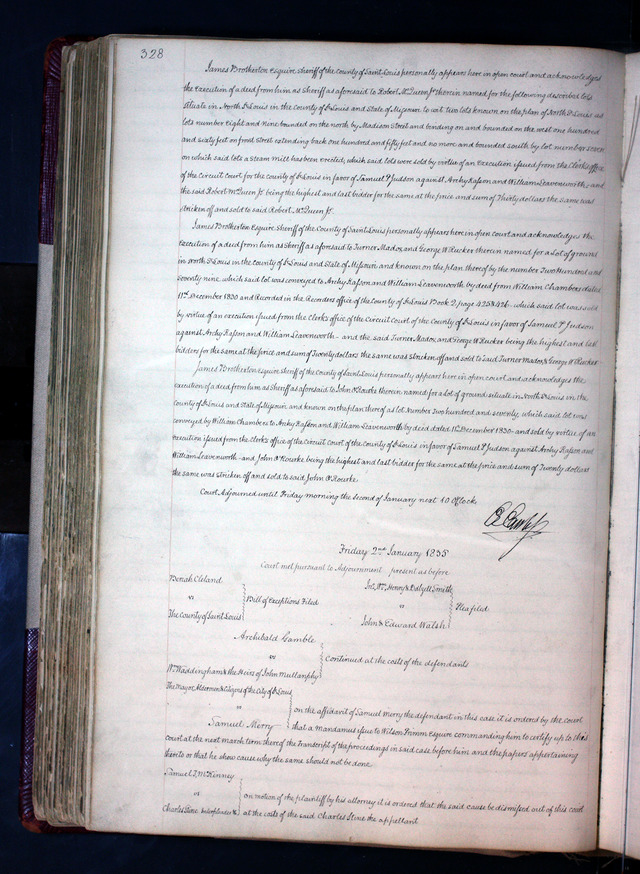 328
James Brotherton esquire sheriff of the county of Saint Louis personally appears here in open court and acknowledges
the execution of a deed from him as sheriff as aforesaid to Robert McQueen Jr therein named for the following described lots
situate in North St Louis in the county of St Louis and State of Missouri to wit two lots known on the plan of North St Louis as
lots number eight and nine bounded on the north by Madison Street and bending on and bounded on the west one hundred
and sixty feet on front street extending back one hundred and fifty feet and no more and bounded south by lot number seven
on which said lots a steam mill has been erected, which said lots were sold by virtue of an Execution issued from the Clerks office
of the Circuit Court for the county of St Louis in favor of Samuel P Judson against Archy Kasson and William Leavenworth - and
the said Robert McQueen Jr being the highest and last bidder for the same at the price and sum of Thirty dollars the same was
stricken off and sold to said Robert McQueen Jr.
James Brotherton Esquire Sheriff of the County of Saint Louis personally appears here in open court and acknowledges the
execution of a deed from him as Sheriff as aforesaid to Turner Maddox and George W Rucker therein named for a Lot of ground
in North St Louis in the county of St Louis and State of Missouri and known on the plan thereof by the number Two Hundred and
seventy nine which said lot was conveyed to Archy Kasson and William Leavenworth by deed from William Chambers dated
11th December 1830 and recorded in the Recorders office of the County of St Louis Book 2, page 425 & 426 - which said lot was sold
by virtue of an execution issued from the Clerks office of the Circuit Court of the County of St Louis in favor of Samuel P Judson
against Archy Kasson and William Leavenworth - and the said Turner Maddox and George W Rucker being the highest and last
bidders for the same at the price and sum of Twenty dollars the same was stricken off and sold to said Turner Maddox & George W Rucker
James Brotherton esquire sheriff of the County of Saint Louis personally appears here in open court and acknowledges the
execution of a deed from him as Sheriff as aforesaid to John O'Rourke therein named for a Lot of ground situate in North St Louis in the
county of St Louis and State of Missouri and known on the plan thereof as lot Number two hundred and seventy, which said lot was
conveyed by William Chambers to Archy Kasson and William Leavenworth by deed dated 11th December 1830 - and sold by virtue of an
execution issued from the clerks office of the circuit court of the county of St Louis in favor of Samuel P Judson against Archy Kasson and
William Leavenworth - and John O'Rourke being the highest and last bidder for the same at the price and sum of Twenty dollars
the same was stricken off and sold to said John O'Rourke
Court Adjourned until Friday morning the second of January next 10 O'Clock
Friday 2nd January 1835
Court met pursuant to Adjournment present as before
Benah Cleland
vs
The County of Saint Louis
Bill of Exceptions Filed
Jas, Wm, Henry & Edlyell Smith
vs
John & Edward Walsh
Plea filed
Archibald Gamble
vs
Wm Waddingham & the Heirs of John Mullanphy
Continued at the costs of the defendants
The Mayor Aldermen & Citizens of the City of St Louis
vs
Samuel Merry
on the affidavit of Samuel Merry the defendant in this case it is ordered by the court
that a mandamus issue to Wilson Primm Esquire commanding him to certify up to this
court at the next march term thereof the Transcript of the proceedings in said case before him and the papers appertaining
thereto or that he show cause why the same should not be done
Samuel T McKinney
vs
Charles Stine
on motion of the plaintiff by his attorney it is ordered that the said cause be dismissed out of this court
at the costs of the said Charles Stine the appellant